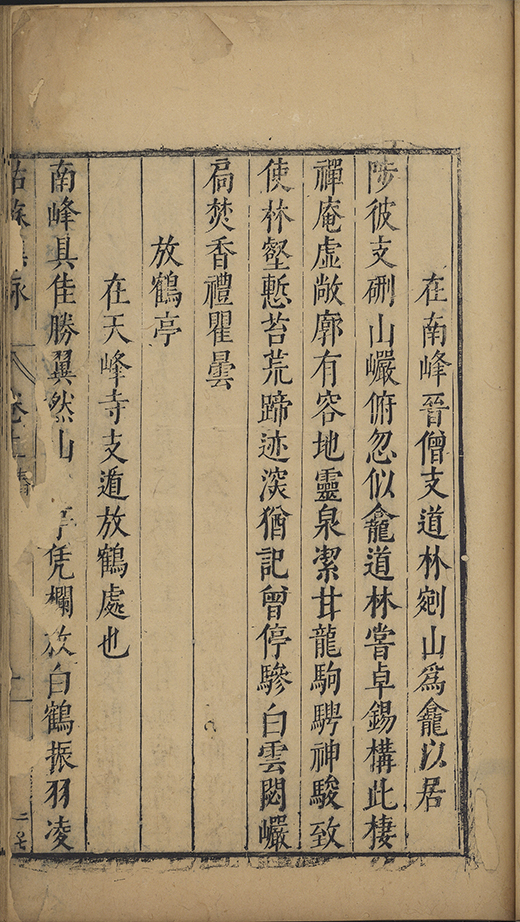 在南峰晉僧支道林剜山爲龕以居
陟彼支硎山巗俯忽似龕道林嘗卓錫構此棲
禪庵虛敞廓有容地靈泉潔甘龍駒騁神駿致
使林壑慙苔荒蹄迹湥猶記曾停驂白雲閟巗
扃焚香禮瞿曇
放鶴亭
在天峰寺支遁放鶴處也
南峰具佳勝翼然山亭凭欄放白鶴振羽凌